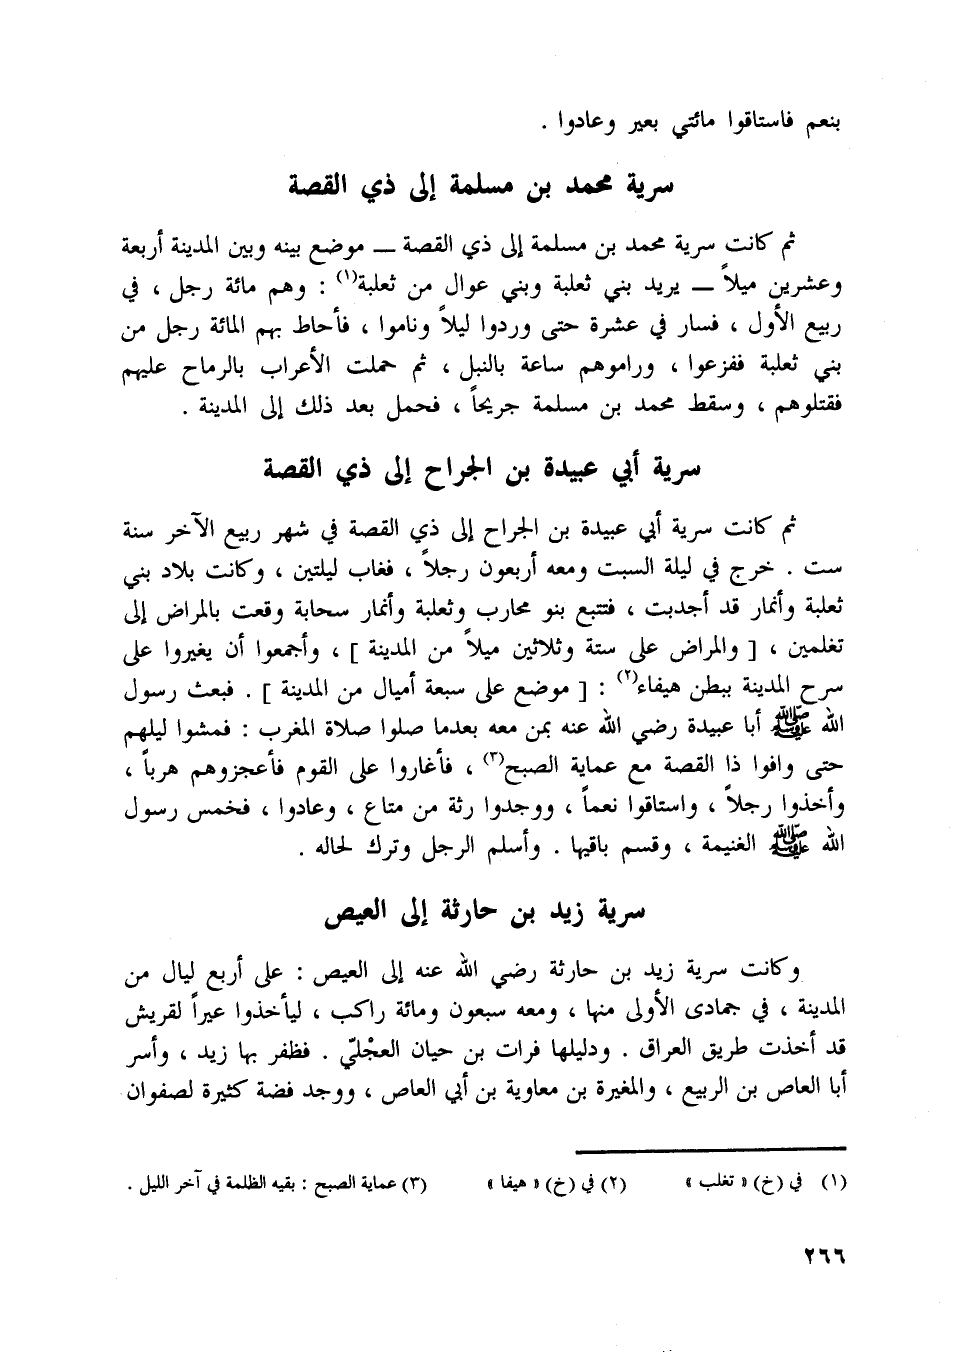 بنعم فاستاقوا مائتي بعير وعادوا .
سرية محمد بن مسلمة إلى ذي القصة
ثم كانت سرية محمد بن مسلمة إلى ذي القصة ــ موضع بينه وبين المدينة أربعة
وعشرين ميلاً ــ يريد بني ثعلبة وبني عوال من ثعلبة(١) : وهم مائة رجل ، في
ربيع الأول ، فسار في عشرة حتى وردوا ليلاً وناموا ، فأحاط بهم المائة رجل من
بني ثعلبة ففزعوا ، وراموهم ساعة بالنبل ، ثم حملت الأعراب بالرماح عليهم
فقتلوهم ، وسقط محمد بن مسلمة جريحاً ، فحمل بعد ذلك إلى المدينة .
سرية أبي عبيدة بن الجراح إلى ذي القصة
ثم كانت سرية أبي عبيدة بن الجراح إلى ذي القصة في شهر ربيع الآخر سنة
ست . خرج في ليلة السبت ومعه أربعون رجلاً ، فغاب ليلتين ، وكانت بلاد بني
ثعلبة وأنمار قد أجدبت ، فتتبع بنو محارب وثعلبة وأنمار سحابة وقعت بالمراض إلى
تغلمين ، [ والمراض على ستة وثلاثين ميلاً من المدينة ] ، وأجمعوا أن يغيروا على
سرح المدينة ببطن هيفاء(٢) : [ موضع على سبعة أميال من المدينة ] . فبعث رسول
الله ﷺ أبا عبيدة رضي الله عنه بمن معه بعدما صلوا صلاة المغرب : فمشوا ليلهم
حتى وافوا ذا القصة مع عماية الصبح(٣) ، فأغاروا على القوم فأعجزوهم هرباً ،
وأخذوا رجلاً ، واستاقوا نعماً ، ووجدوا رثة من متاع ، وعادوا ، فخمس رسول
الله ﷺ الغنيمة ، وقسم باقيها . وأسلم الرجل وترك لحاله .
سرية زيد بن حارثة إلى العيص
وكانت سرية زيد بن حارثة رضي الله عنه إلى العيص : على أربع ليال من
المدينة ، في جمادى الأولى منها ، ومعه سبعون ومائة راكب ، ليأخذوا عيراً لقريش
قد أخذت طريق العراق . ودليلها فرات بن حيان العجْليّ . فظفر بها زيد ، وأسر
أبا العاص بن الربيع ، والمغيرة بن معاوية بن أبي العاص ، ووجد فضة كثيرة لصفوان
(١) في (خ) « تغلب » (٢) في (خ) « هيفا » (٣) عماية الصبح : بقيه الظلمة في آخر الليل .
٢٦٦